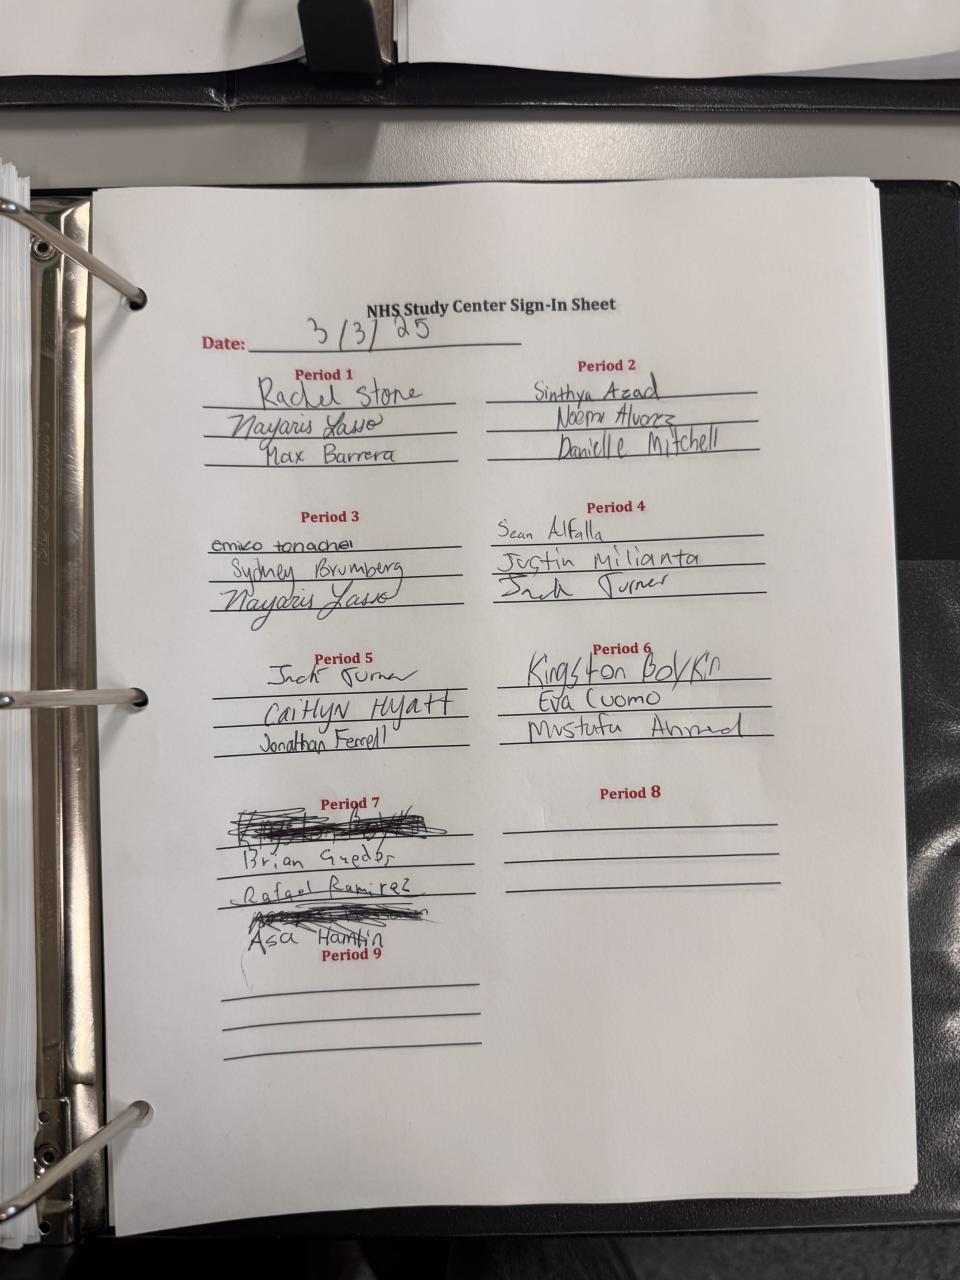 NHS Study Center Sign-In Sheet
Date: 3/3/25
Period 1
Rachel Stone
Nayaris Lasso
Max Barrera
Period 2
Sinthya Azad
Noemi Alvarez
Danielle Mitchell
Period 3
emiko tonachel
Sydney Brumberg
Nayaris Lasso
Period 4
Sean Alfalla
Justin Milianta
Jack Turner
Period 5
Jack Turner
CaitlyN Hyatt
Jonathan Ferrell
Period 6
Kingston Boykin
Eva Cuomo
Mustufa Ahmed
Period 7
Brian
Rafael Ramirez
Asa Hamlin
Period 8
Period 9